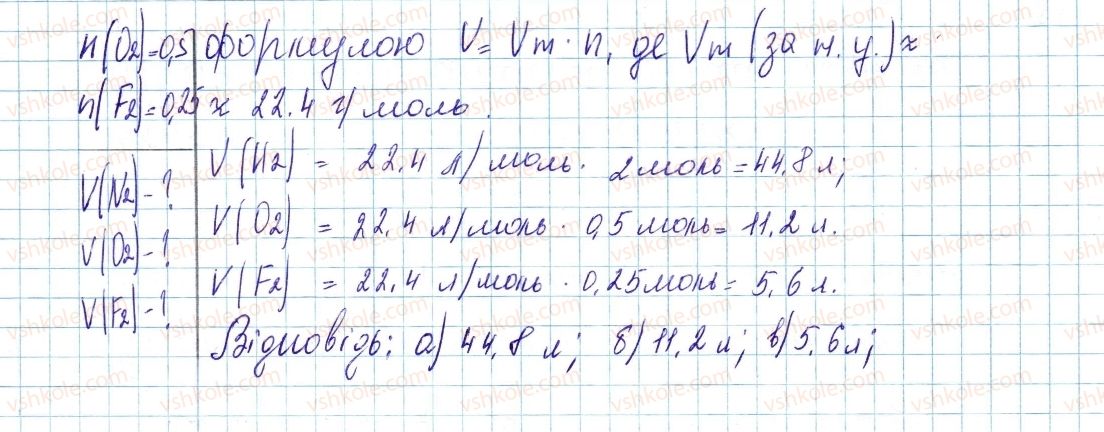 n(O2)=0,5 формулою V = Vm · n, де Vm (за н. у.) ≈
n(F2)=0,25 ≈ 22.4 г/моль.
V(N2) - ? V(H2) = 22,4 л/моль · 2 моль = 44,8 л;
V(O2) - ? V(O2) = 22,4 л/моль · 0,5 моль = 11,2 л.
V(F2) - ? V(F2) = 22,4 л/моль · 0,25 моль = 5,6 л.
Відповідь: а) 44,8 л; б) 11,2 л; в) 5,6 л;
vshkole.com